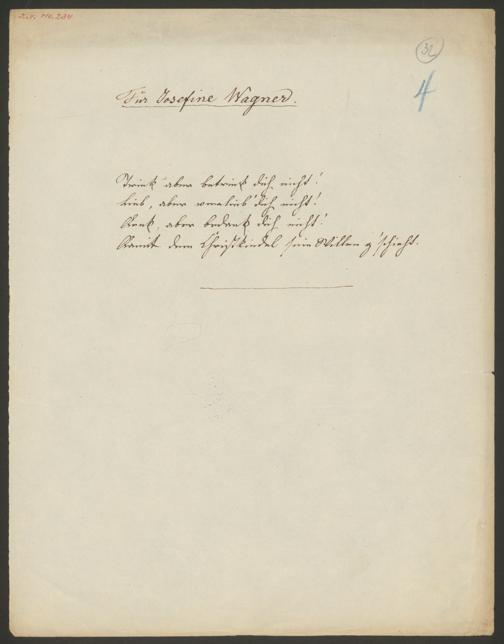 Z.S. No. 284
32
4
Für Josefine Wagner.
Trink' aber betrink dich nicht!
Lieb, aber verlieb' dich nicht!
Denk, aber bedank dich nicht!
Damit dem Christkindel sein Willen g'schieht.